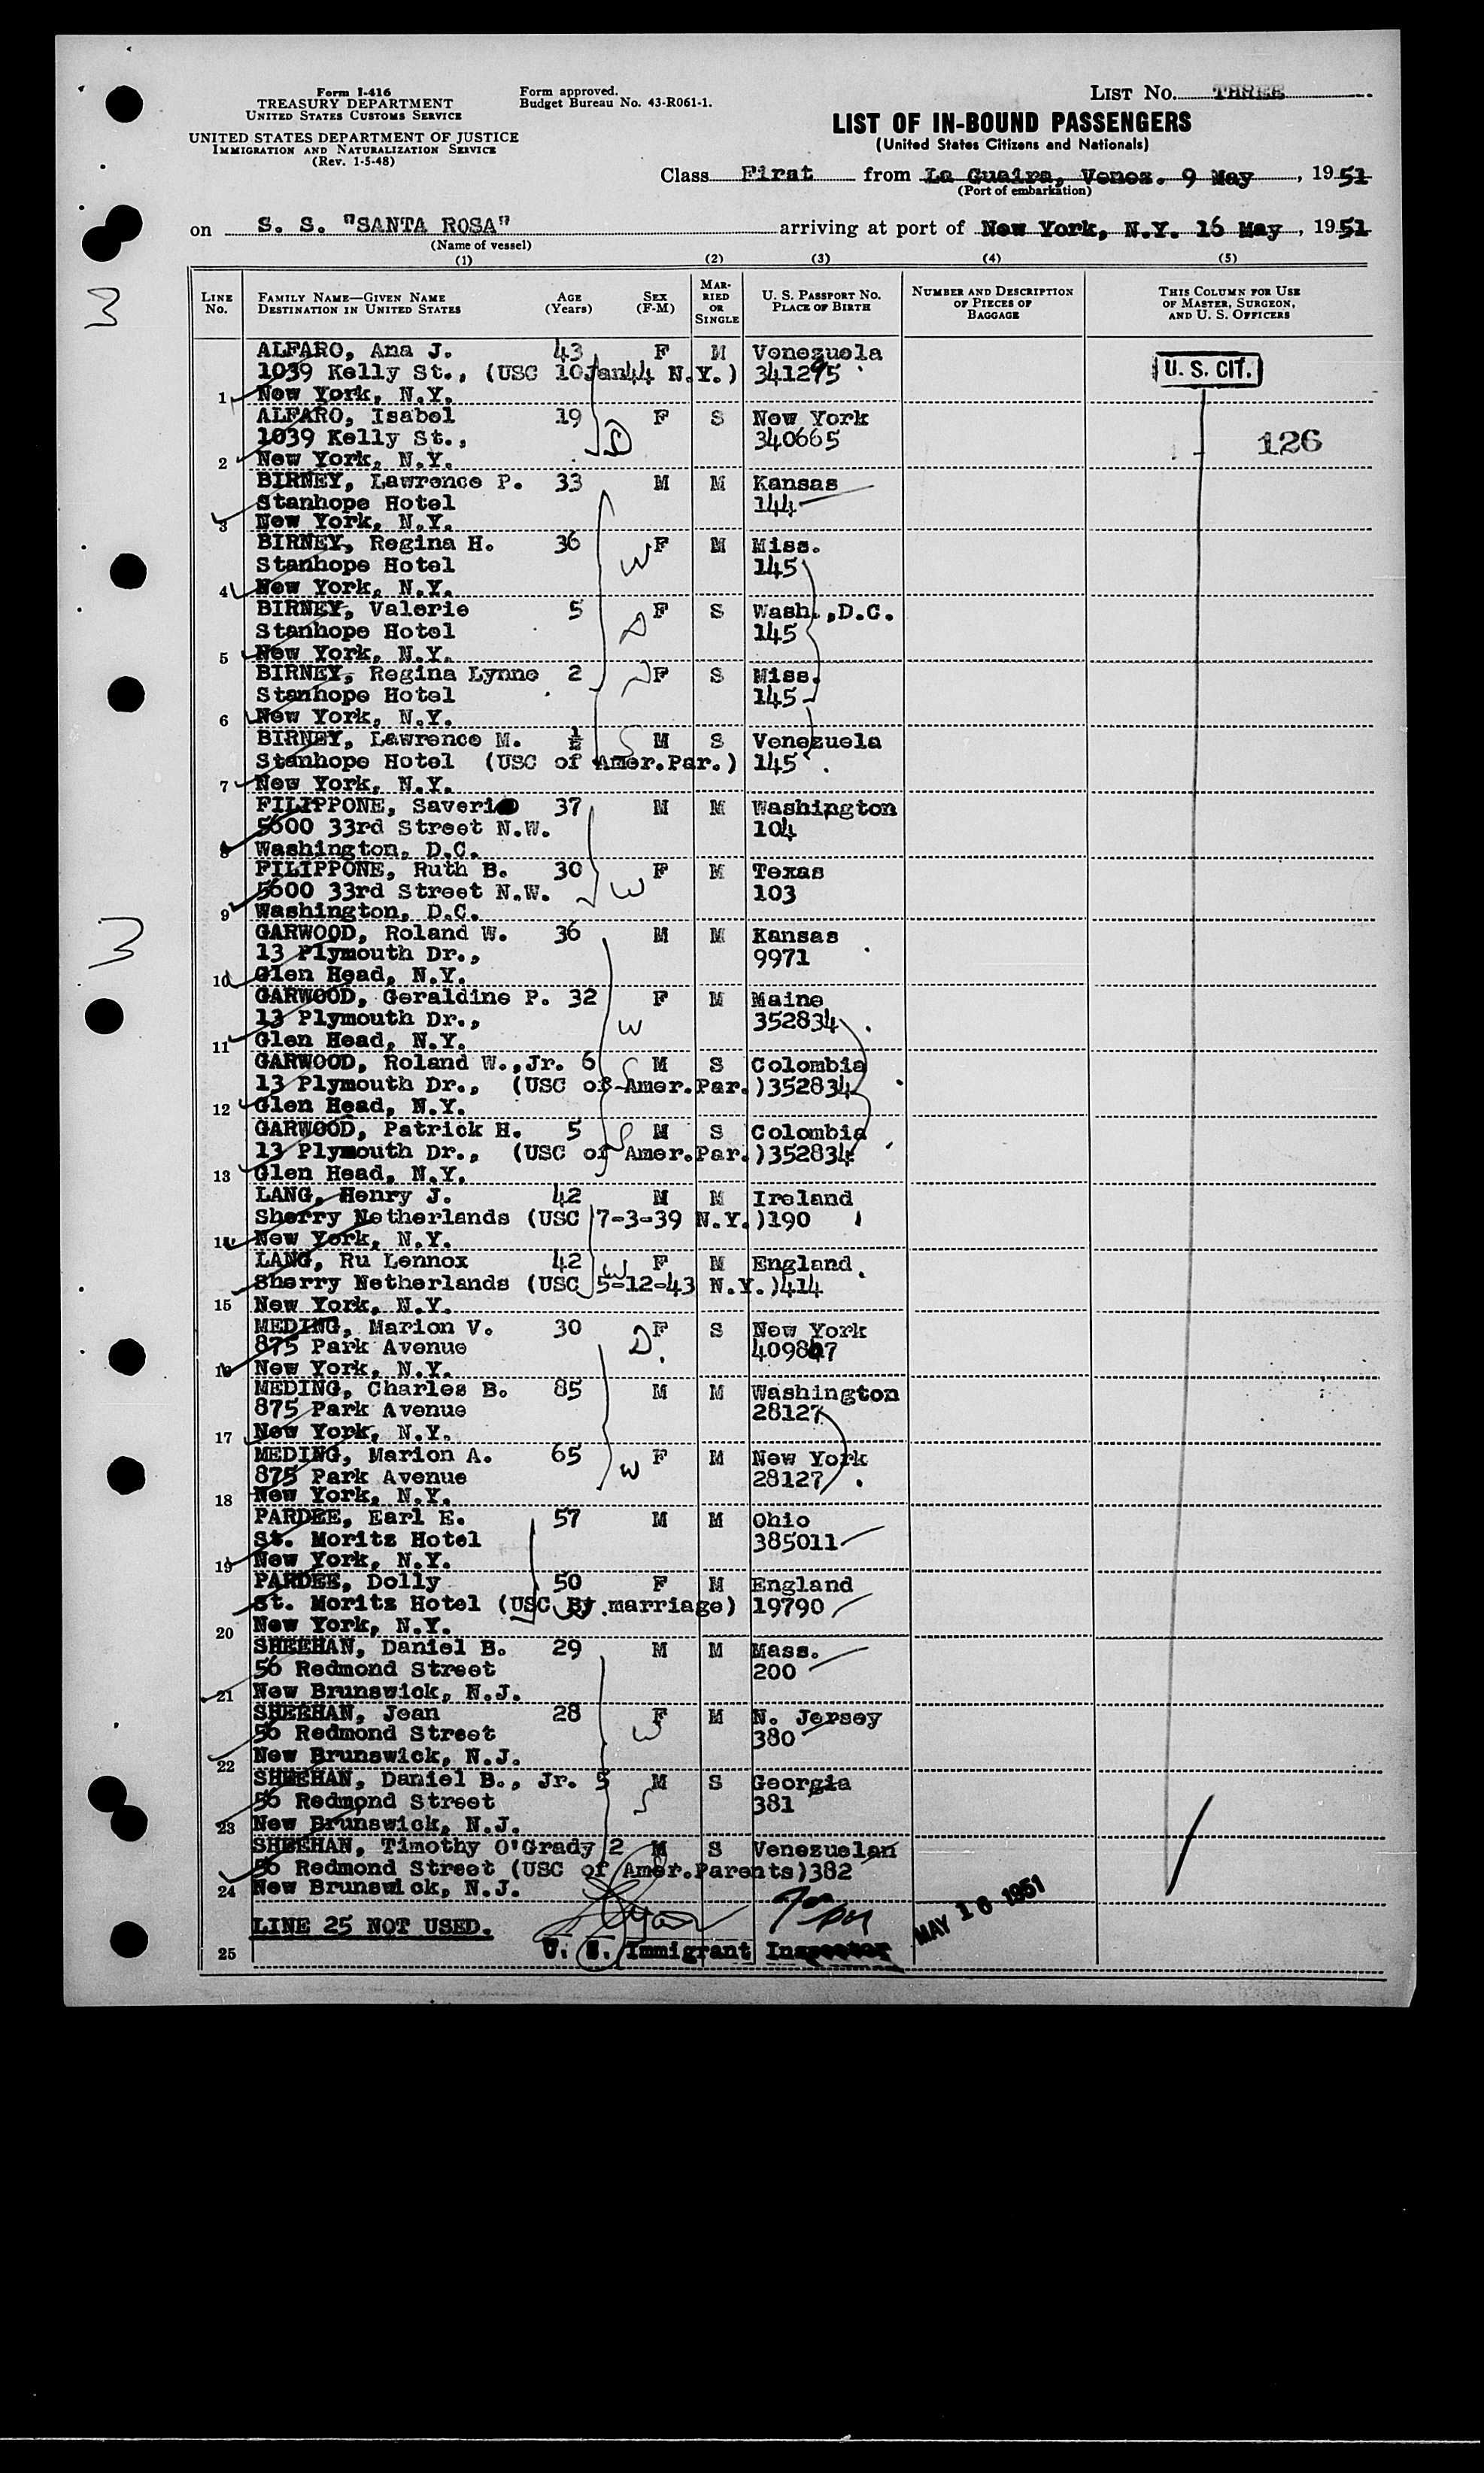 Form I-416
TREASURY DEPARTMENT
UNITED STATES CUSTOMS SERVICE
UNITED STATES DEPARTMENT OF JUSTICE
IMMIGRATION AND NATURALIZATION SERVICE
(Rev. 1-5-48)
Form approved.
Budget Bureau No. 43-R061-1.
LIST No. THREE
LIST OF IN-BOUND PASSENGERS
(United States Citizens and Nationals)
Class First from La Guaira, Venez. 9 May, 1951
(Port of embarkation)
on S. S. "SANTA ROSA" arriving at port of New York, N.Y. 16 May, 1951
(Name of vessel)
(1) (2) (3) (4) (5)
LINE No. FAMILY NAME—GIVEN NAME DESTINATION IN UNITED STATES AGE (Years) SEX (F-M) MARRIED OR SINGLE U. S. PASSPORT NO. PLACE OF BIRTH NUMBER AND DESCRIPTION OF PIECES OF BAGGAGE THIS COLUMN FOR USE OF MASTER, SURGEON, AND U. S. OFFICERS
3
ALFARO, Ana J. 43 F M Venezuela
1039 Kelly St., (USC 10Jan44 N.Y.) 341295 U. S. CIT.
1 New York, N.Y.
ALFARO, Isabel 19 F S New York
1039 Kelly St., D 340665 126
2 New York, N.Y.
BIRNEY, Lawrence P. 33 M M Kansas
Stanhope Hotel 144
3 New York, N.Y.
BIRNEY, Regina H. 36 F M Miss.
Stanhope Hotel W 145
4 New York, N.Y.
BIRNEY, Valerie 5 F S Wash.,D.C.
Stanhope Hotel D 145
5 New York, N.Y.
BIRNEY, Regina Lynne 2 D F S Miss.
Stanhope Hotel 145
6 New York, N.Y.
BIRNEY, Lawrence M. ½ S M S Venezuela
Stanhope Hotel (USC of Amer.Par.) 145
7 New York, N.Y.
FILIPPONE, Saverio 37 M M Washington
5600 33rd Street N.W. 104
8 Washington, D.C.
FILIPPONE, Ruth B. 30 F M Texas
5600 33rd Street N.W. W 103
9 Washington, D.C.
3
GARWOOD, Roland W. 36 M M Kansas
13 Plymouth Dr., 9971
10 Glen Head, N.Y.
GARWOOD, Geraldine P. 32 F M Maine
13 Plymouth Dr., W 352834
11 Glen Head, N.Y.
GARWOOD, Roland W.,Jr. 6 S M S Colombia
13 Plymouth Dr., (USC of Amer.Par.)352834
12 Glen Head, N.Y.
GARWOOD, Patrick H. 5 S M S Colombia
13 Plymouth Dr., (USC of Amer.Par.)352834
13 Glen Head, N.Y.
LANG, Henry J. 42 M M Ireland
Sherry Netherlands (USC 7-3-39 N.Y.)190
14 New York, N.Y.
LANG, Ru Lennox 42 W F M England
Sherry Netherlands (USC 5-12-43 N.Y.)414
15 New York, N.Y.
MEDING, Marion V. 30 D F S New York
875 Park Avenue 409847
16 New York, N.Y.
MEDING, Charles B. 85 M M Washington
875 Park Avenue 28127
17 New York, N.Y.
MEDING, Marion A. 65 F M New York
875 Park Avenue W 28127
18 New York, N.Y.
PARDEE, Earl E. 57 M M Ohio
St. Moritz Hotel 385011
19 New York, N.Y.
PARDEE, Dolly 50 F M England
St. Moritz Hotel (USC By marriage) 19790
20 New York, N.Y.
SHEEHAN, Daniel B. 29 M M Mass.
56 Redmond Street 200
21 New Brunswick, N.J.
SHEEHAN, Jean 28 F M N. Jersey
56 Redmond Street W 380
22 New Brunswick, N.J.
SHEEHAN, Daniel B., Jr. 5 M S Georgia
56 Redmond Street S 381
23 New Brunswick, N.J.
SHEEHAN, Timothy O'Grady 2 M S Venezuelan
56 Redmond Street (USC of Amer.Parents)382
24 New Brunswick, N.J.
LINE 25 NOT USED. MAY 16 1951
25 U. S. Immigrant Inspector